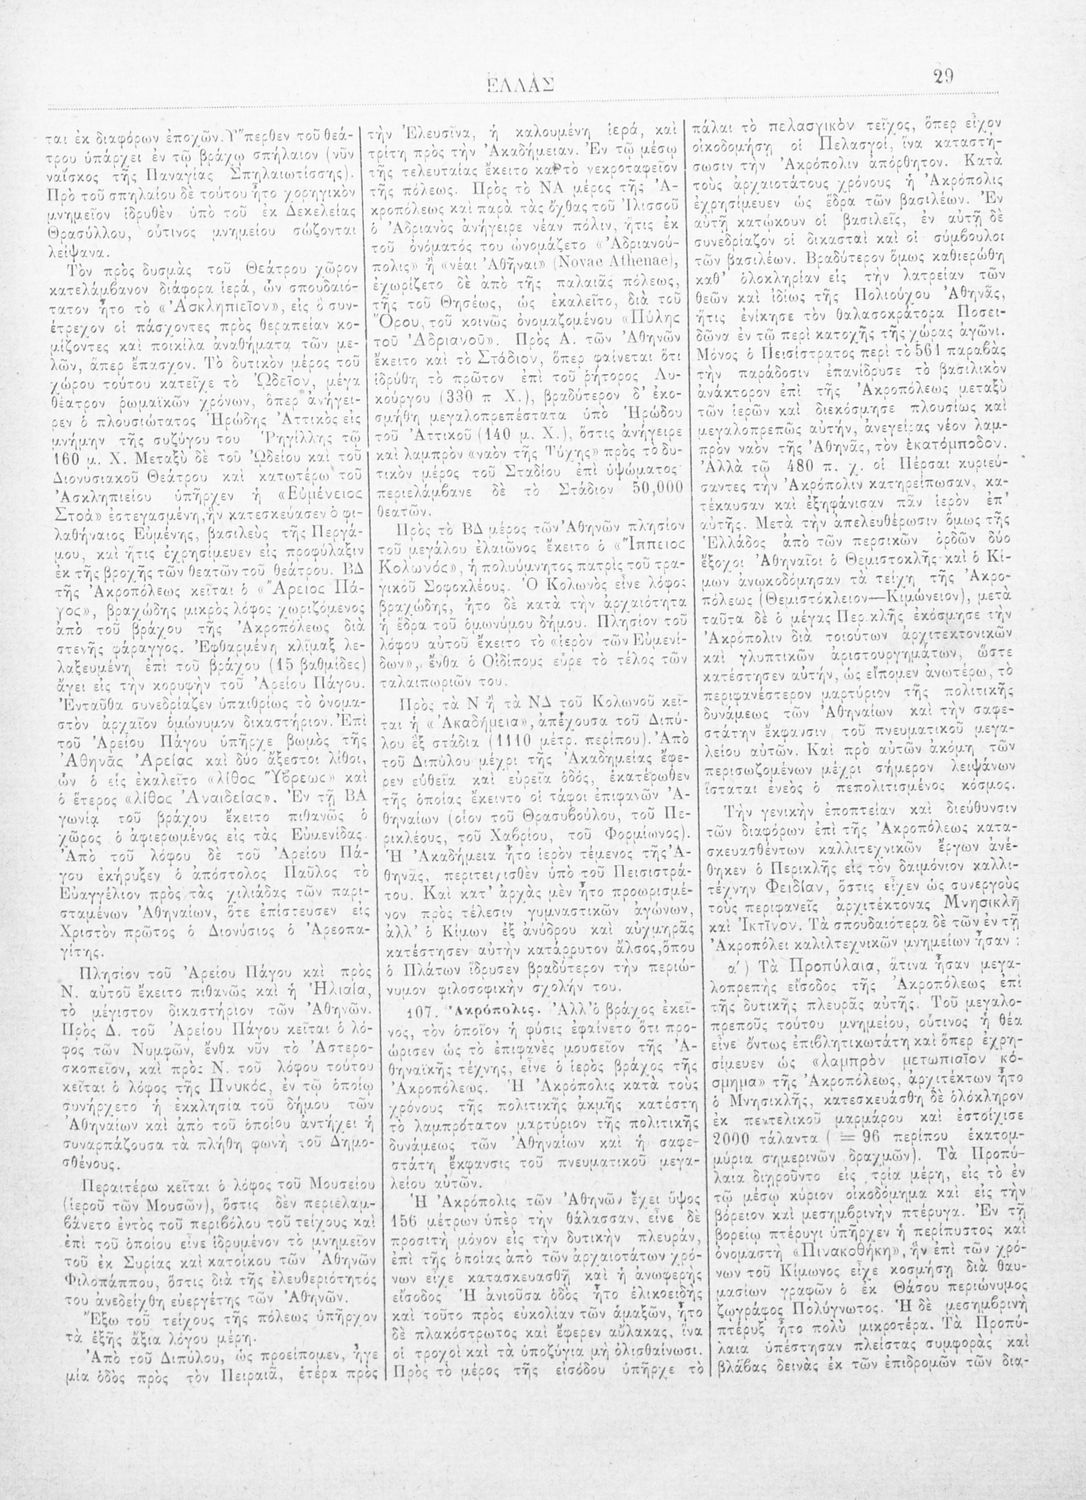 ΕΛΛΑΣ
29
ται ἐκ διαφόρων ἐποχῶν. Ὕπερθεν τοῦ θεά-
τρου ὑπάρχει ἐν τῷ βράχῳ σπήλαιον (νῦν
ναΐσκος τῆς Παναγίας Σπηλαιωτίσσης).
Πρὸ τοῦ σπηλαίου δὲ τούτου ἦτο χορηγικὸν
μνημεῖον ἱδρυθὲν ὑπὸ τοῦ ἐκ Δεκελείας
Θρασύλλου, οὕτινος μνημείου σώζονται
λείψανα.
Τὸν πρὸς δυσμὰς τοῦ Θεάτρου χῶρον
κατελάμβανον διάφορα ἱερά, ὧν σπουδαιό-
τατον ἦτο τὸ «Ἀσκληπιεῖον», εἰς ὃ συν-
έτρεχον οἱ πάσχοντες πρὸς θεραπείαν κο-
μίζοντες καὶ ποικίλα ἀναθήματα τῶν με-
λῶν, ἅπερ ἔπασχον. Τὸ δυτικὸν μέρος τοῦ
χώρου τούτου κατεῖχε τὸ Ὠδεῖον, μέγα
θέατρον ῥωμαϊκῶν χρόνων, ὅπερ ἀνήγει-
ρεν ὁ πλουσιώτατος Ἡρώδης Ἀττικὸς εἰς
μνήμην τῆς συζύγου του Ῥηγίλλης τῷ
160 μ. Χ. Μεταξὺ δὲ τοῦ Ὠδείου καὶ τοῦ
Διονυσιακοῦ Θεάτρου καὶ κατωτέρω τοῦ
Ἀσκληπιείου ὑπῆρχεν ἡ «Εὐμένειος
Στοὰ» ἐστεγασμένη, ἣν κατεσκεύασεν ὁ φι-
λαθήναιος Εὐμένης, βασιλεὺς τῆς Περγά-
μου, καὶ ἥτις ἐχρησίμευεν εἰς προφύλαξιν
ἐκ τῆς βροχῆς τῶν θεατῶν τοῦ θεάτρου. ΒΔ
τῆς Ἀκροπόλεως κεῖται ὁ «Ἄρειος Πά-
γος», βραχώδης μικρὸς λόφος χωριζόμενος
ἀπὸ τοῦ βράχου τῆς Ἀκροπόλεως διὰ
στενῆς φάραγγος. Ἐφθαρμένη κλίμαξ λε-
λαξευμένη ἐπὶ τοῦ βράχου (15 βαθμίδες)
ἄγει εἰς τὴν κορυφὴν τοῦ Ἀρείου Πάγου.
Ἐνταῦθα συνεδρίαζεν ὑπαιθρίως τὸ ὀνομα-
στὸν ἀρχαῖον ὁμώνυμον δικαστήριον. Ἐπὶ
τοῦ Ἀρείου Πάγου ὑπῆρχε βωμὸς τῆς
Ἀθηνᾶς Ἀρείας καὶ δύο ἄξεστοι λίθοι,
ὧν ὁ εἷς ἐκαλεῖτο «λίθος Ὕβρεως» καὶ
ὁ ἕτερος «λίθος Ἀναιδείας». Ἐν τῇ ΒΑ
γωνίᾳ τοῦ βράχου ἔκειτο πιθανῶς ὁ
χῶρος ὁ ἀφιερωμένος εἰς τὰς Εὐμενίδας
Ἀπὸ τοῦ λόφου δὲ τοῦ Ἀρείου Πά-
γου ἐκήρυξεν ὁ ἀπόστολος Παῦλος τὸ
Εὐαγγέλιον πρὸς τὰς χιλιάδας τῶν παρι-
σταμένων Ἀθηναίων, ὅτε ἐπίστευσεν εἰς
Χριστὸν πρῶτος ὁ Διονύσιος ὁ Ἀρεοπα-
γίτης.
Πλησίον τοῦ Ἀρείου Πάγου καὶ πρὸς
Ν. αὐτοῦ ἔκειτο πιθανῶς καὶ ἡ Ἡλιαία,
τὸ μέγιστον δικαστήριον τῶν Ἀθηνῶν.
Πρὸς Δ. τοῦ Ἀρείου Πάγου κεῖται ὁ λό-
φος τῶν Νυμφῶν, ἔνθα νῦν τὸ Ἀστερο-
σκοπεῖον, καὶ πρὸς Ν. τοῦ λόφου τούτου
κεῖται ὁ λόφος τῆς Πνυκός, ἐν τῷ ὁποίῳ
συνήρχετο ἡ ἐκκλησία τοῦ δήμου τῶν
Ἀθηναίων καὶ ἀπὸ τοῦ ὁποίου ἀντήχει ἡ
συναρπάζουσα τὰ πλήθη φωνὴ τοῦ Δημο-
σθένους.
Περαιτέρω κεῖται ὁ λόφος τοῦ Μουσείου
(ἱεροῦ τῶν Μουσῶν), ὅστις δὲν περιελαμ-
βάνετο ἐντὸς τοῦ περιβόλου τοῦ τείχους καὶ
ἐπὶ τοῦ ὁποίου εἶνε ἱδρυμένον τὸ μνημεῖον
τοῦ ἐκ Συρίας καὶ κατοίκου τῶν Ἀθηνῶν
Φιλοπάππου, ὅστις διὰ τῆς ἐλευθεριότητός
του ἀνεδείχθη εὐεργέτης τῶν Ἀθηνῶν.
Ἔξω τοῦ τείχους τῆς πόλεως ὑπῆρχον
τὰ ἑξῆς ἄξια λόγου μέρη.
Ἀπὸ τοῦ Διπύλου, ὡς προείπομεν, ἦγε
μία ὁδὸς πρὸς τὸν Πειραιᾶ, ἑτέρα πρὸς
τὴν Ἐλευσῖνα, ἡ καλουμένη ἱερά, καὶ
τρίτη πρὸς τὴν Ἀκαδήμειαν. Ἐν τῷ μέσῳ
τῆς τελευταίας ἔκειτο καὶ τὸ νεκροταφεῖον
τῆς πόλεως. Πρὸς τὸ ΝΑ μέρος τῆς Ἀ-
κροπόλεως καὶ παρὰ τὰς ὄχθας τοῦ Ἰλισσοῦ
ὁ Ἀδριανὸς ἀνήγειρε νέαν πόλιν, ἥτις ἐκ
τοῦ ὀνόματός του ὠνομάζετο «Ἀδριανού-
πολις» ἢ «νέαι Ἀθῆναι» (Novae Athenae),
ἐχωρίζετο δὲ ἀπὸ τῆς παλαιᾶς πόλεως,
τῆς τοῦ Θησέως, ὡς ἐκαλεῖτο, διὰ τοῦ
Ὅρου, τοῦ κοινῶς ὀνομαζομένου «Πύλης
τοῦ Ἀδριανοῦ». Πρὸς Α. τῶν Ἀθηνῶν
ἔκειτο καὶ τὸ Στάδιον, ὅπερ φαίνεται ὅτι
ἱδρύθη τὸ πρῶτον ἐπὶ τοῦ ῥήτορος Λυ-
κούργου (330 π Χ.), βραδύτερον δ' ἐκο-
σμήθη μεγαλοπρεπέστατα ὑπὸ Ἡρώδου
τοῦ Ἀττικοῦ (140 μ. Χ.), ὅστις ἀνήγειρε
καὶ λαμπρὸν «ναὸν τῆς Τύχης» πρὸς τὸ δυ-
τικὸν μέρος τοῦ Σταδίου ἐπὶ ὑψώματος
περιελάμβανε δὲ τὸ Στάδιον 50,000
θεατῶν.
Πρὸς τὸ ΒΔ μέρος τῶν Ἀθηνῶν πλησίον
τοῦ μεγάλου ἐλαιῶνος ἔκειτο ὁ «Ἵππειος
Κολωνός», ἡ πολυύμνητος πατρὶς τοῦ τρα-
γικοῦ Σοφοκλέους. Ὁ Κολωνὸς εἶνε λόφος
βραχώδης, ἦτο δὲ κατὰ τὴν ἀρχαιότητα
ἡ ἕδρα τοῦ ὁμωνύμου δήμου. Πλησίον τοῦ
λόφου αὐτοῦ ἔκειτο τὸ «ἱερὸν τῶν Εὐμενί-
δων», ἔνθα ὁ Οἰδίπους εὗρε τὸ τέλος τῶν
ταλαιπωριῶν του.
Πρὸς τὰ Ν ἢ τὰ ΝΔ τοῦ Κολωνοῦ κεῖ-
ται ἡ «Ἀκαδήμεια», ἀπέχουσα τοῦ Διπύ-
λου ἓξ στάδια (1110 μέτρ. περίπου). Ἀπὸ
τοῦ Διπύλου μέχρι τῆς Ἀκαδημείας ἔφε-
ρεν εὐθεῖα καὶ εὐρεῖα ὁδός, ἑκατέρωθεν
τῆς ὁποίας ἔκειντο οἱ τάφοι ἐπιφανῶν Ἀ-
θηναίων (οἷον τοῦ Θρασυβούλου, τοῦ Πε-
ρικλέους, τοῦ Χαβρίου, τοῦ Φορμίωνος).
Ἡ Ἀκαδήμεια ἦτο ἱερὸν τέμενος τῆς Ἀ-
θηνᾶς, περιτειχισθὲν ὑπὸ τοῦ Πεισιστρά-
του. Καὶ κατ' ἀρχὰς μὲν ἦτο προωρισμέ-
νον πρὸς τέλεσιν γυμναστικῶν ἀγώνων,
ἀλλ' ὁ Κίμων ἐξ ἀνύδρου καὶ αὐχμηρᾶς
κατέστησεν αὐτὴν κατάρρυτον ἄλσος, ὅπου
ὁ Πλάτων ἵδρυσεν βραδύτερον τὴν περιώ-
νυμον φιλοσοφικὴν σχολήν του.
107. Ἀκρόπολις. Ἀλλ' ὁ βράχος ἐκεῖ-
νος, τὸν ὁποῖον ἡ φύσις ἐφαίνετο ὅτι προ-
ώρισεν ὡς τὸ ἐπιφανὲς μουσεῖον τῆς Ἀ-
θηναϊκῆς τέχνης, εἶνε ὁ ἱερὸς βράχος τῆς
Ἀκροπόλεως. Ἡ Ἀκρόπολις κατὰ τοὺς
χρόνους τῆς πολιτικῆς ἀκμῆς κατέστη
τὸ λαμπρότατον μαρτύριον τῆς πολιτικῆς
δυνάμεως τῶν Ἀθηναίων καὶ ἡ σαφε-
στάτη ἔκφανσις τοῦ πνευματικοῦ μεγα-
λείου αὐτῶν.
Ἡ Ἀκρόπολις τῶν Ἀθηνῶν ἔχει ὕψος
156 μέτρων ὑπὲρ τὴν θάλασσαν, εἶνε δὲ
προσιτὴ μόνον εἰς τὴν δυτικὴν πλευράν,
ἐπὶ τῆς ὁποίας ἀπὸ τῶν ἀρχαιοτάτων χρό-
νων εἶχε κατασκευασθῆ καὶ ἡ ἀνωφερὴς
εἴσοδος Ἡ ἀνιοῦσα ὁδὸς ἦτο ἑλικοειδὴς
καὶ τοῦτο πρὸς εὐκολίαν τῶν ἁμαξῶν, ἦτο
δὲ πλακόστρωτος καὶ ἔφερεν αὔλακας, ἵνα
οἱ τροχοὶ καὶ τὰ ὑποζύγια μὴ ὀλισθαίνωσι.
Πρὸς τὸ μέρος τῆς εἰσόδου ὑπῆρχε τὸ
πάλαι τὸ πελασγικὸν τεῖχος, ὅπερ εἶχον
οἰκοδομήσῃ οἱ Πελασγοί, ἵνα καταστή-
σωσιν τὴν Ἀκρόπολιν ἀπόρθητον. Κατὰ
τοὺς ἀρχαιοτάτους χρόνους ἡ Ἀκρόπολις
ἐχρησίμευεν ὡς ἕδρα τῶν βασιλέων. Ἐν
αὐτῇ κατῴκουν οἱ βασιλεῖς, ἐν αὐτῇ δὲ
συνεδρίαζον οἱ δικασταὶ καὶ οἱ σύμβουλοι
τῶν βασιλέων. Βραδύτερον ὅμως καθιερώθη
καθ' ὁλοκληρίαν εἰς τὴν λατρείαν τῶν
θεῶν καὶ ἰδίως τῆς Πολιούχου Ἀθηνᾶς,
ἥτις ἐνίκησε τὸν θαλασοκράτορα Ποσει-
δῶνα ἐν τῷ περὶ κατοχῆς τῆς χώρας ἀγῶνι.
Μόνος ὁ Πεισίστρατος περὶ τὸ 561 παραβὰς
τὴν παράδοσιν ἐπανίδρυσε τὸ βασιλικὸν
ἀνάκτορον ἐπὶ τῆς Ἀκροπόλεως μεταξὺ
τῶν ἱερῶν καὶ διεκόσμησε πλουσίως καὶ
μεγαλοπρεπῶς αὐτήν, ἀνεγείρας νέον λαμ-
πρὸν ναὸν τῆς Ἀθηνᾶς, τὸν ἑκατόμποδον.
Ἀλλὰ τῷ 480 π. χ. οἱ Πέρσαι κυριεύ-
σαντες τὴν Ἀκρόπολιν κατηρείπωσαν, κα-
τέκαυσαν καὶ ἐξηφάνισαν πᾶν ἱερὸν ἐπ'
αὐτῆς. Μετὰ τὴν ἀπελευθέρωσιν ὅμως τῆς
Ἑλλάδος ἀπὸ τῶν περσικῶν ὀρδῶν δύο
ἔξοχοι Ἀθηναῖοι ὁ Θεμιστοκλῆς καὶ ὁ Κί-
μων ἀνῳκοδόμησαν τὰ τείχη τῆς Ἀκρο-
πόλεως (Θεμιστόκλειον—Κιμώνειον), μετὰ
ταῦτα δὲ ὁ μέγας Περικλῆς ἐκόσμησε τὴν
Ἀκρόπολιν διὰ τοιούτων ἀρχιτεκτονικῶν
καὶ γλυπτικῶν ἀριστουργημάτων, ὥστε
κατέστησεν αὐτήν, ὡς εἴπομεν ἀνωτέρω, τὸ
περιφανέστερον μαρτύριον τῆς πολιτικῆς
δυνάμεως τῶν Ἀθηναίων καὶ τὴν σαφε-
στάτην ἔκφανσιν τοῦ πνευματικοῦ μεγα-
λείου αὐτῶν. Καὶ πρὸ αὐτῶν ἀκόμη τῶν
περισωζομένων μέχρι σήμερον λειψάνων
ἵσταται ἐνεὸς ὁ πεπολιτισμένος κόσμος.
Τὴν γενικὴν ἐποπτείαν καὶ διεύθυνσιν
τῶν διαφόρων ἐπὶ τῆς Ἀκροπόλεως κατα-
σκευασθέντων καλλιτεχνικῶν ἔργων ἀνέ-
θηκεν ὁ Περικλῆς εἰς τὸν δαιμόνιον καλλι-
τέχνην Φειδίαν, ὅστις εἶχεν ὡς συνεργοὺς
τοὺς περιφανεῖς ἀρχιτέκτονας Μνησικλῆ
καὶ Ἰκτῖνον. Τὰ σπουδαιότερα δὲ τῶν ἐν τῇ
Ἀκροπόλει καλιλτεχνικῶν μνημείων ἦσαν :
α') Τὰ Προπύλαια, ἅτινα ἦσαν μεγα-
λοπρεπὴς εἴσοδος τῆς Ἀκροπόλεως ἐπὶ
τῆς δυτικῆς πλευρᾶς αὐτῆς. Τοῦ μεγαλο-
πρεποῦς τούτου μνημείου, οὕτινος ἡ θέα
εἶνε ὄντως ἐπιβλητικωτάτη καὶ ὅπερ ἐχρη-
σίμευεν ὡς «λαμπρὸν μετωπιαῖον κό-
σμημα» τῆς Ἀκροπόλεως, ἀρχιτέκτων ἦτο
ὁ Μνησικλῆς, κατεσκευάσθη δὲ ὁλόκληρον
ἐκ πεντελικοῦ μαρμάρου καὶ ἐστοίχισε
2000 τάλαντα ( = 96 περίπου ἑκατομ-
μύρια σημερινῶν δραχμῶν). Τὰ Προπύ-
λαια διῃροῦντο εἰς τρία μέρη, εἰς τὸ ἐν
τῷ μέσῳ κύριον οἰκοδόμημα καὶ εἰς τὴν
βόρειον καὶ μεσημβρινὴν πτέρυγα. Ἐν τῇ
βορείῳ πτέρυγι ὑπῆρχεν ἡ περίπυστος καὶ
ὀνομαστὴ «Πινακοθήκη», ἣν ἐπὶ τῶν χρό-
νων τοῦ Κίμωνος εἶχε κοσμήσῃ διὰ θαυ-
μασίων γραφῶν ὁ ἐκ Θάσου περιώνυμος
ζωγράφος Πολύγνωτος. Ἡ δὲ μεσημβρινὴ
πτέρυξ ἦτο πολὺ μικροτέρα. Τὰ Προπύ-
λαια ὑπέστησαν πλείστας συμφορὰς καὶ
βλάβας δεινὰς ἐκ τῶν ἐπιδρομῶν τῶν δια-